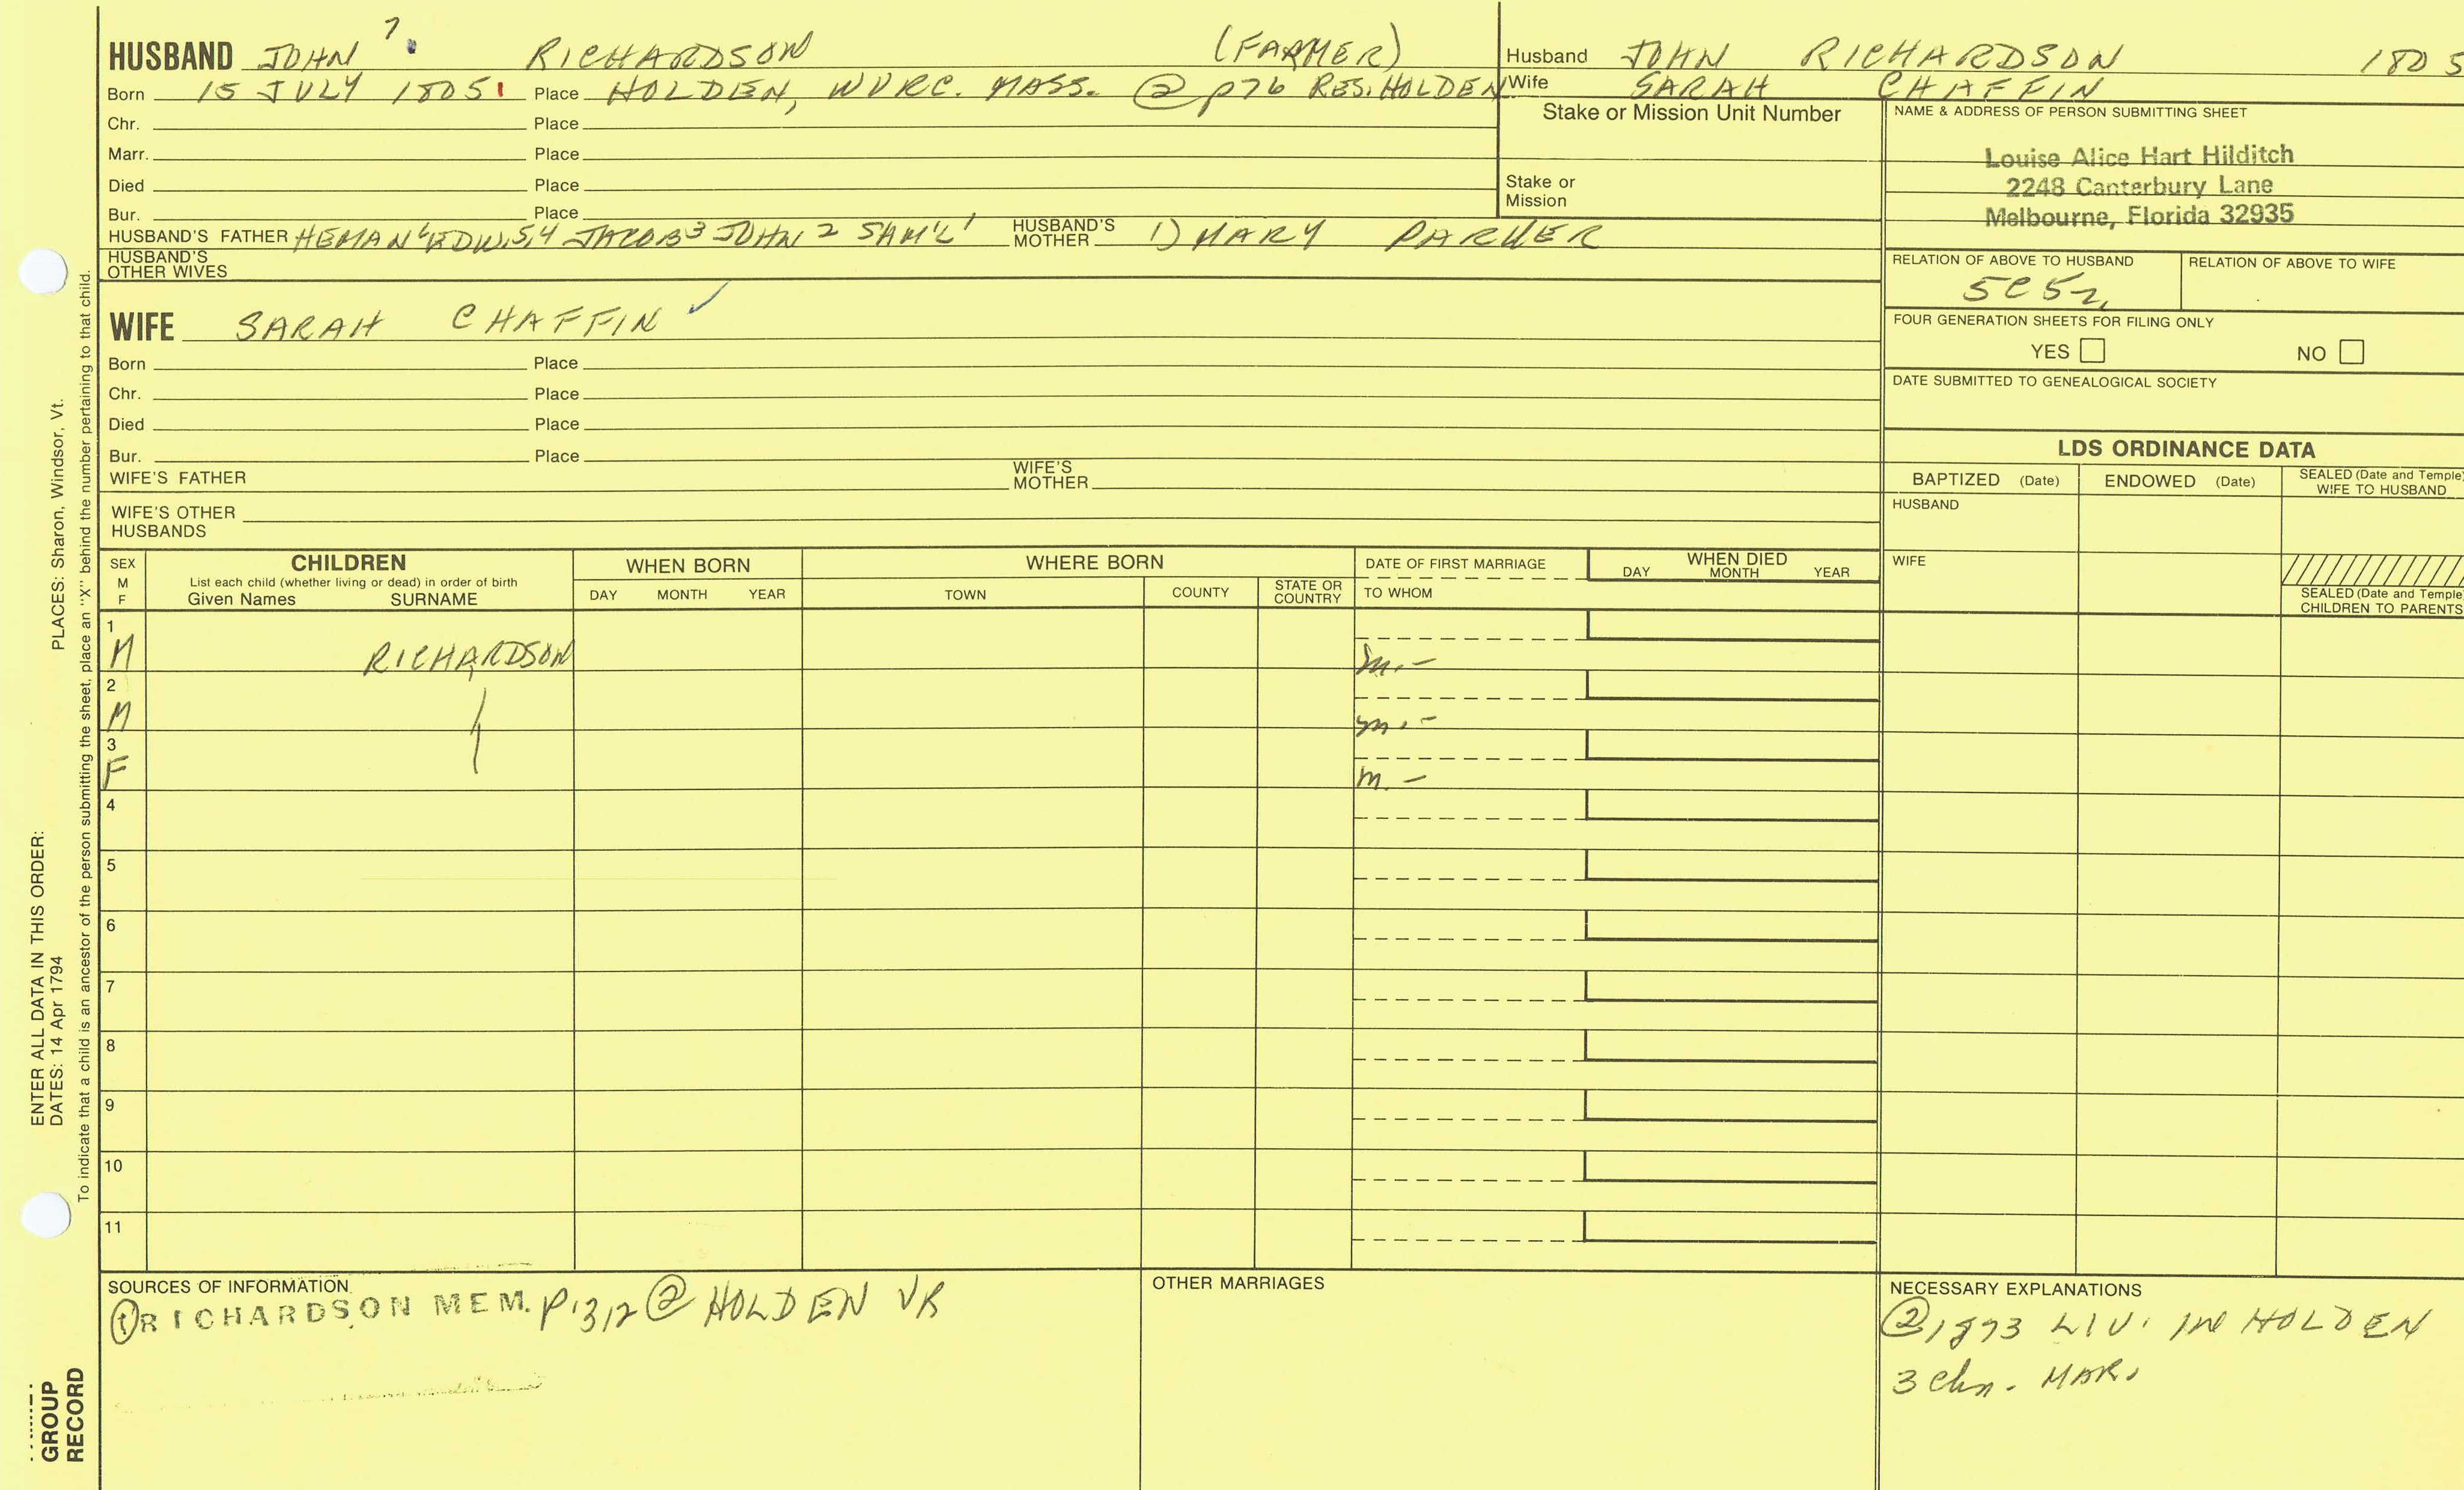 7
HUSBAND JOHN RICHARDSON (FARMER)
Born 15 JULY 1805 Place HOLDEN, WORC. MASS. @ p76 RES. HOLDEN
Chr. Place
Marr. Place
Died Place
Bur. Place
HUSBAND'S FATHER HEMAN EDW. 5,4 JACOB 3 JOHN 2 SAM'L 1 HUSBAND'S MOTHER 1) MARY PARKER
HUSBAND'S OTHER WIVES
WIFE SARAH CHAFFIN ✓
Born Place
Chr. Place
Died Place
Bur. Place
WIFE'S FATHER WIFE'S MOTHER
WIFE'S OTHER HUSBANDS
Husband JOHN RICHARDSON 1805
Wife SARAH CHAFFIN
Stake or Mission Unit Number
Stake or Mission
NAME & ADDRESS OF PERSON SUBMITTING SHEET
Louise Alice Hart Hilditch
2248 Canterbury Lane
Melbourne, Florida 32935
RELATION OF ABOVE TO HUSBAND RELATION OF ABOVE TO WIFE
5C5r
FOUR GENERATION SHEETS FOR FILING ONLY
YES NO
DATE SUBMITTED TO GENEALOGICAL SOCIETY
LDS ORDINANCE DATA
BAPTIZED (Date) ENDOWED (Date) SEALED (Date and Temple) WIFE TO HUSBAND
HUSBAND
WIFE
SEALED (Date and Temple) CHILDREN TO PARENTS
SEX M F
CHILDREN
List each child (whether living or dead) in order of birth
Given Names SURNAME
WHEN BORN
DAY MONTH YEAR
WHERE BORN
TOWN COUNTY STATE OR COUNTRY
DATE OF FIRST MARRIAGE
TO WHOM
WHEN DIED
DAY MONTH YEAR
1
M RICHARDSON m. –
2
M m. –
3
F m. –
4
5
6
7
8
9
10
11
SOURCES OF INFORMATION
① RICHARDSON MEM. P.312 @ HOLDEN VR
OTHER MARRIAGES
NECESSARY EXPLANATIONS
② 1873 LIV. IN HOLDEN
3 chn. MAR.
ENTER ALL DATA IN THIS ORDER:
DATES: 14 Apr 1794 PLACES: Sharon, Windsor, Vt.
To indicate that a child is an ancestor of the person submitting the sheet, place an "X" behind the number pertaining to that child.
GROUP
RECORD